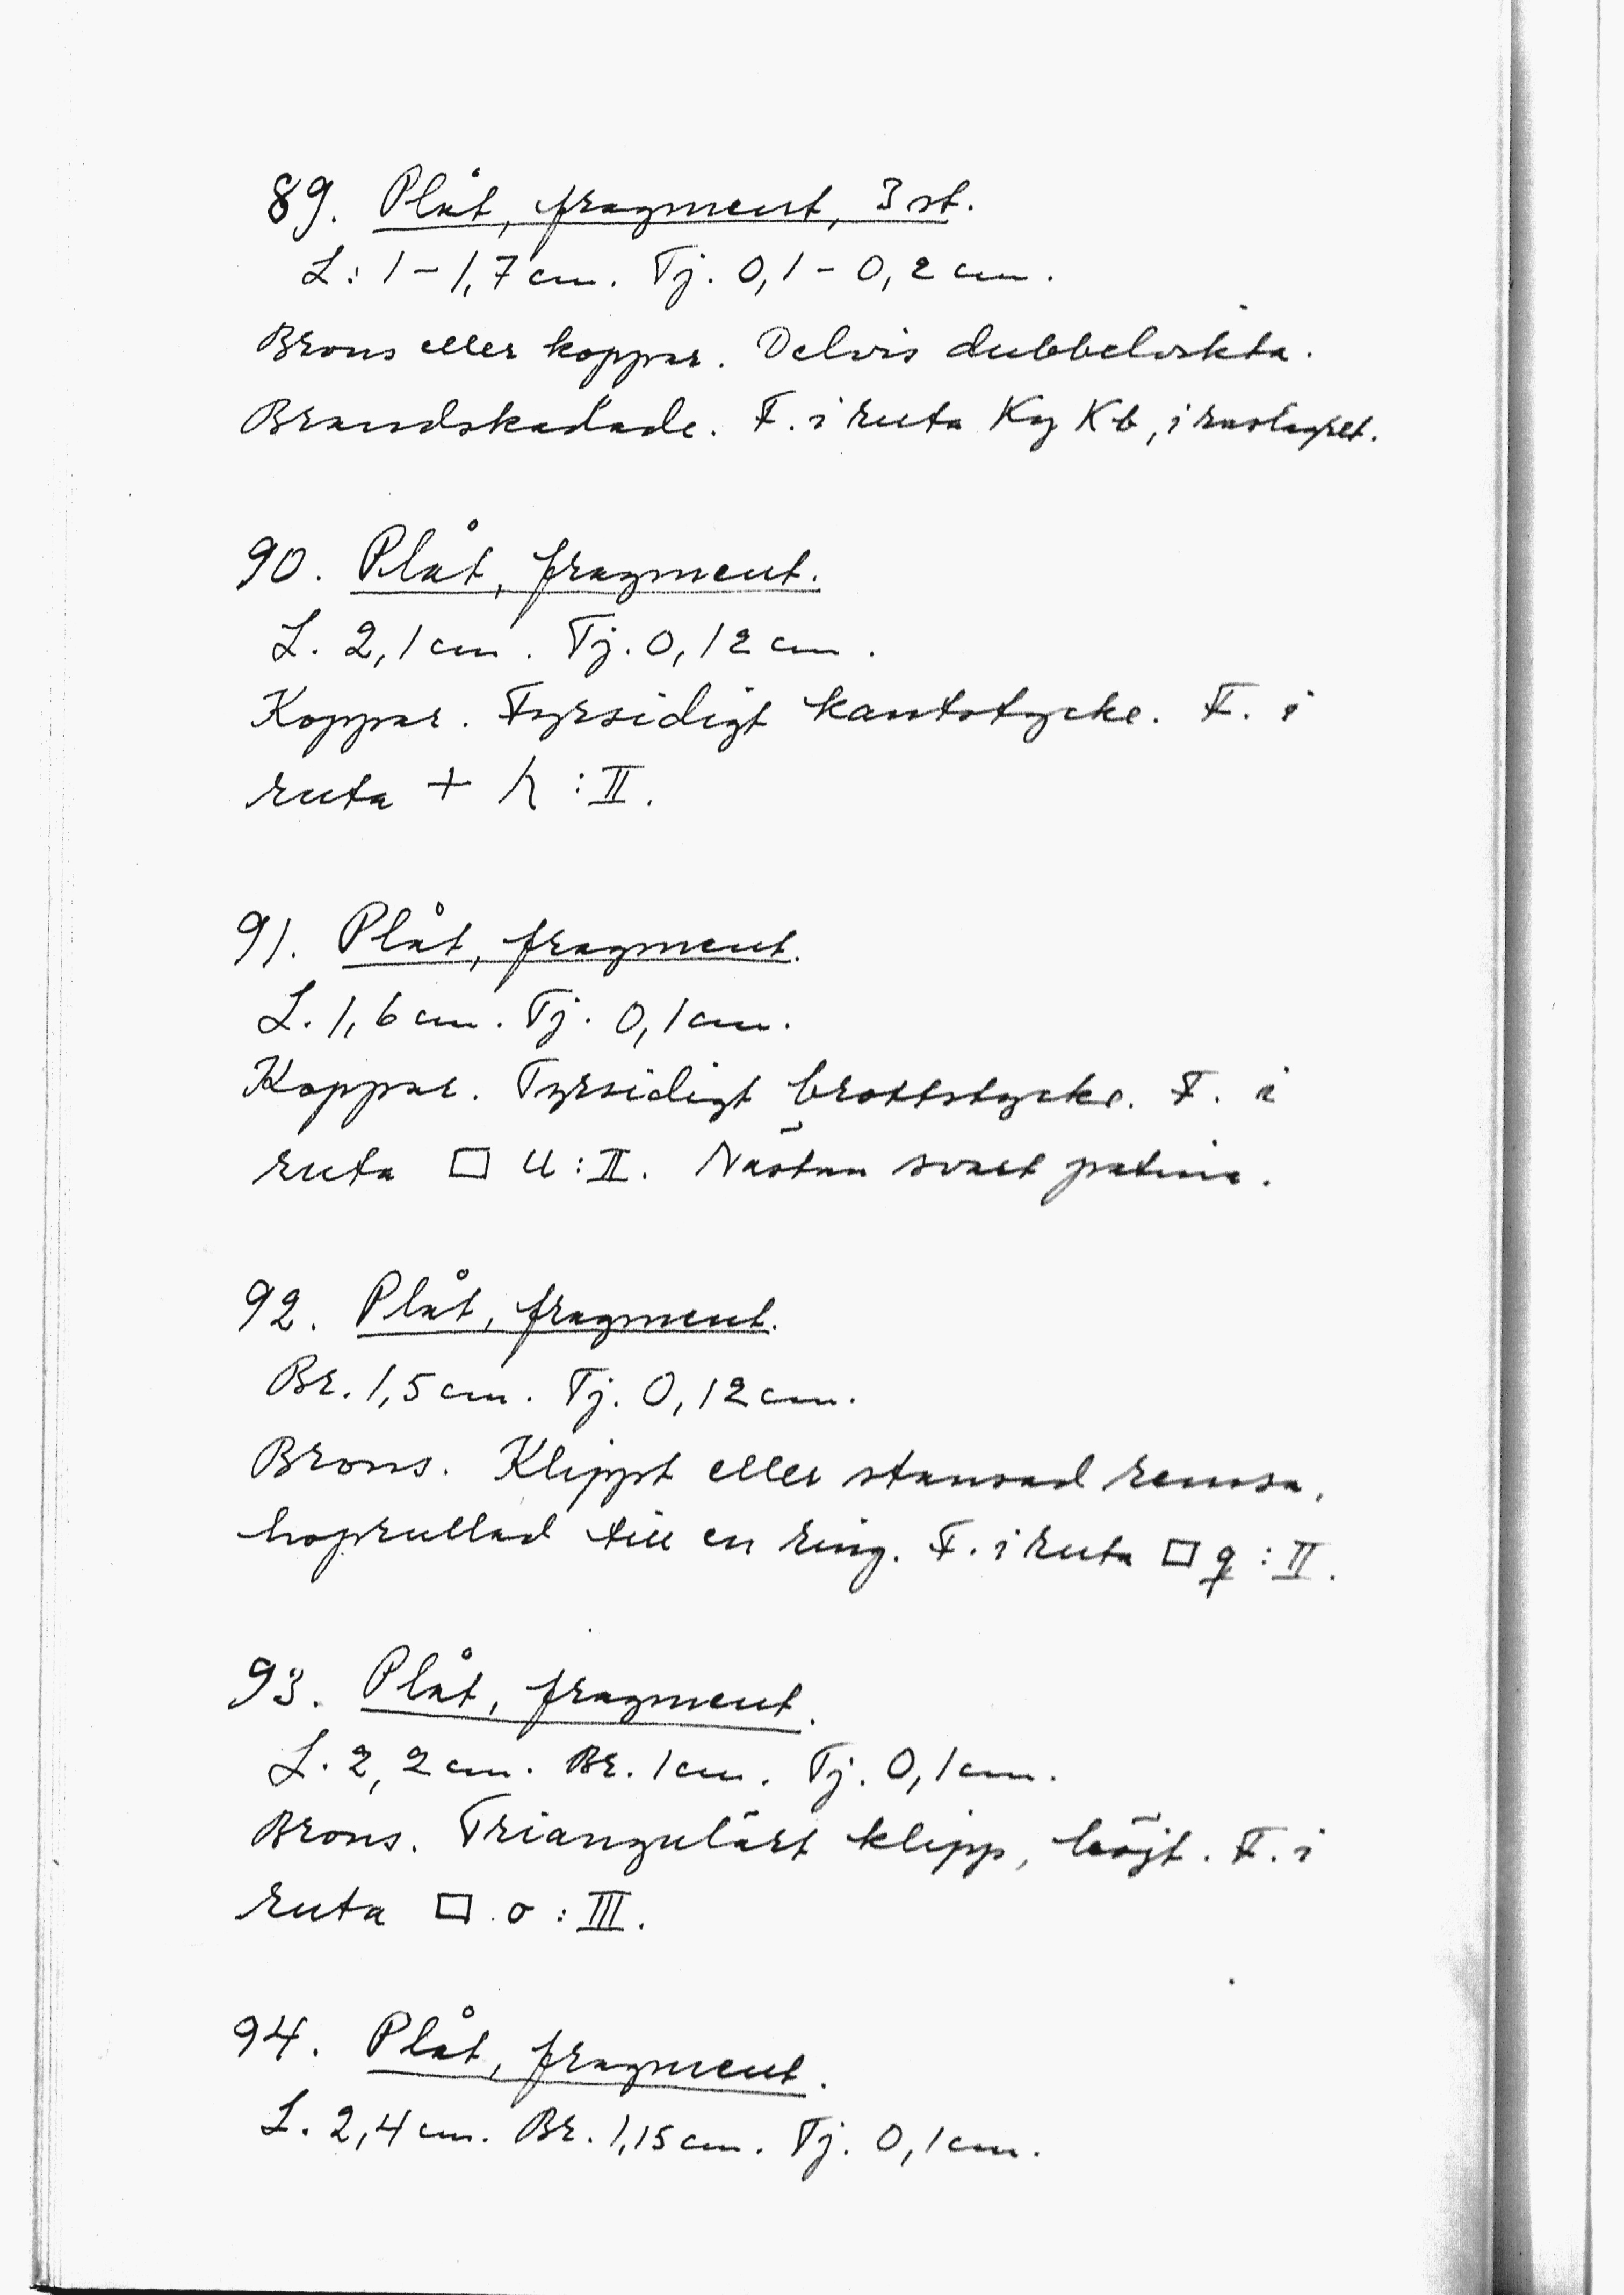 89. Plåt, fragment, 3 st.
L: 1 – 1,7 cm. Tj. 0,1 – 0,2 cm.
Brons eller koppar. Delvis dubbelvikta.
Brandskadade. F. i ruta Kg Kb, i raslagret.
90. Plåt, fragment.
L. 2,1 cm. Tj. 0,12 cm.
Koppar. Fyrsidigt kantstycke. F. i
ruta + h : II.
91. Plåt, fragment.
L. 1,6 cm. Tj. 0,1 cm.
Koppar. Fyrsidigt brottstycke. F. i
ruta □ u : II. Nästan svart patina.
92. Plåt, fragment.
Br. 1,5 cm. Tj. 0,12 cm.
Brons. Klippt eller stansad remsa,
hoprullad till en ring. F. i ruta □ q : II.
93. Plåt, fragment.
L. 2,2 cm. Br. 1 cm. Tj. 0,1 cm.
Brons. Triangulärt klipp, böjt. F. i
ruta □ o : III.
94. Plåt, fragment.
L. 2,4 cm. Br. 1,15 cm. Tj. 0,1 cm.